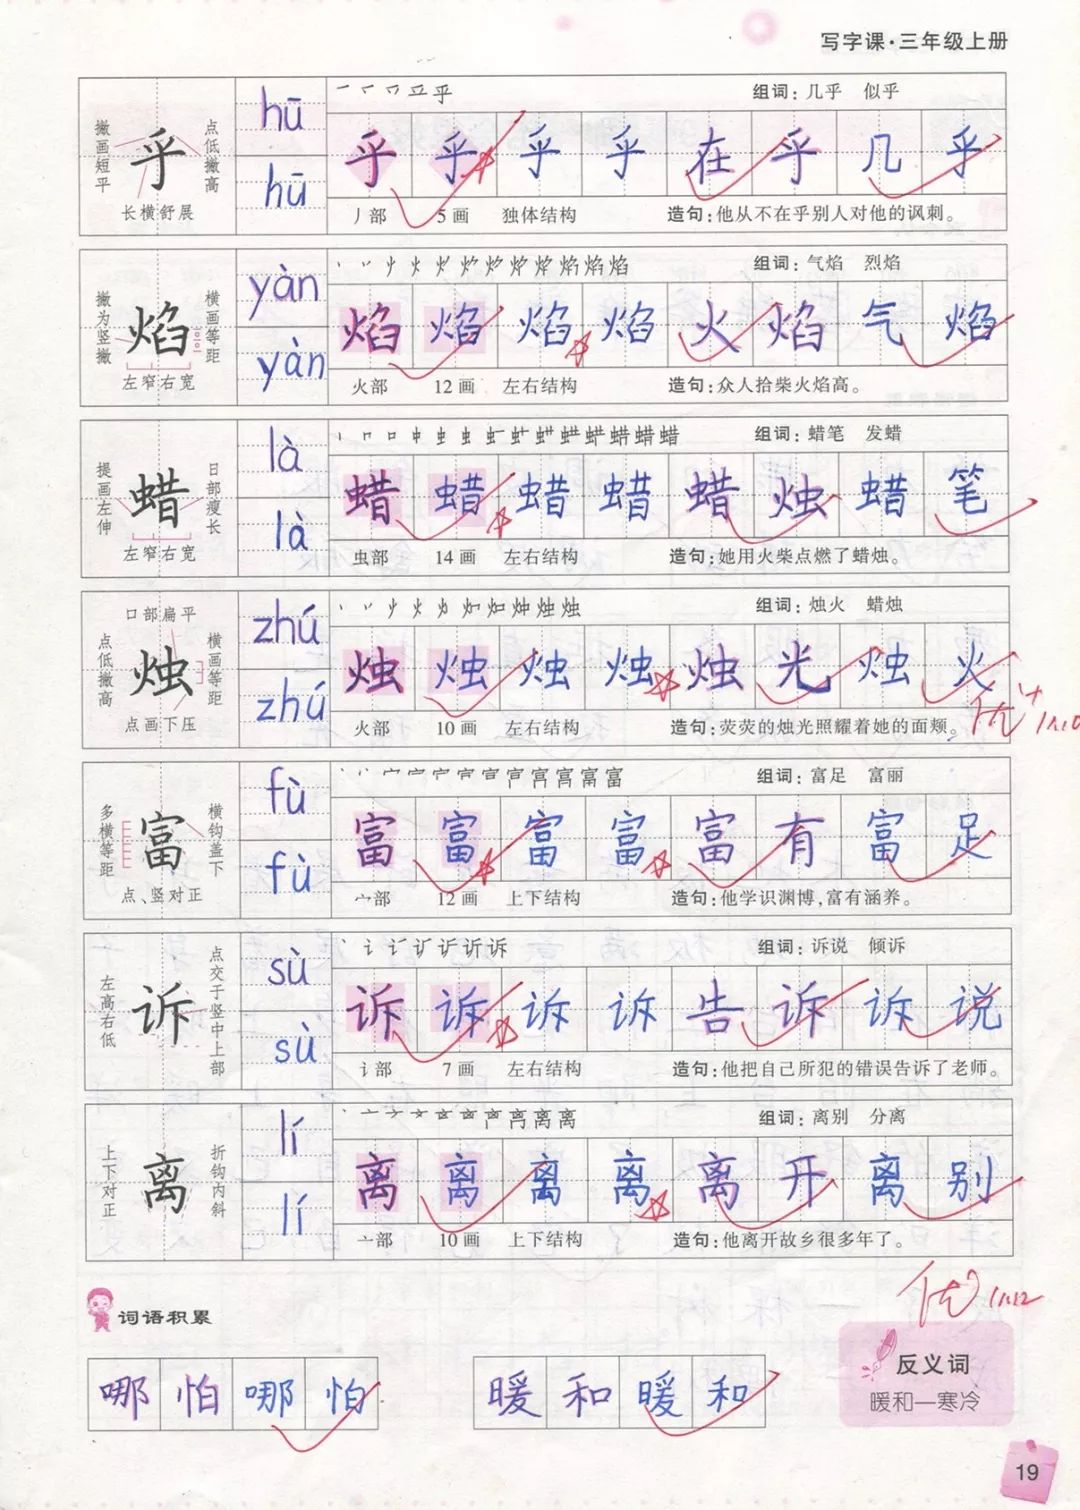 写字课·三年级上册
撇画短平 乎 点低撇高
长横舒展
hū
hū
组词：几乎 似乎
乎 乎 乎 乎 在 乎 几 乎
丿部 5画 独体结构 造句：他从不在乎别人对他的讽刺。
撇为竖撇 焰 横画等距
左窄右宽
yàn
yàn
组词：气焰 烈焰
焰 焰 焰 焰 火 焰 气 焰
火部 12画 左右结构 造句：众人拾柴火焰高。
提画左伸 蜡 日部瘦长
左窄右宽
là
là
组词：蜡笔 发蜡
蜡 蜡 蜡 蜡 蜡 烛 蜡 笔
虫部 14画 左右结构 造句：她用火柴点燃了蜡烛。
口部扁平
点低撇高 烛 横画等距
点画下压
zhú
zhú
组词：烛火 蜡烛
烛 烛 烛 烛 烛 光 烛 火
火部 10画 左右结构 造句：荧荧的烛光照耀着她的面颊。
优+ 11.10
多横等距 富 横钩盖下
点、竖对正
fù
fù
组词：富足 富丽
富 富 富 富 富 有 富 足
宀部 12画 上下结构 造句：他学识渊博，富有涵养。
左高右低 诉 点交于竖中上部
sù
sù
组词：诉说 倾诉
诉 诉 诉 诉 告 诉 诉 说
讠部 7画 左右结构 造句：他把自己所犯的错误告诉了老师。
上下对正 离 折钩内斜
lí
lí
组词：离别 分离
离 离 离 离 离 开 离 别
亠部 10画 上下结构 造句：他离开故乡很多年了。
优 11.12
词语积累
哪 怕 哪 怕 暖 和 暖 和
反义词
暖和—寒冷
19